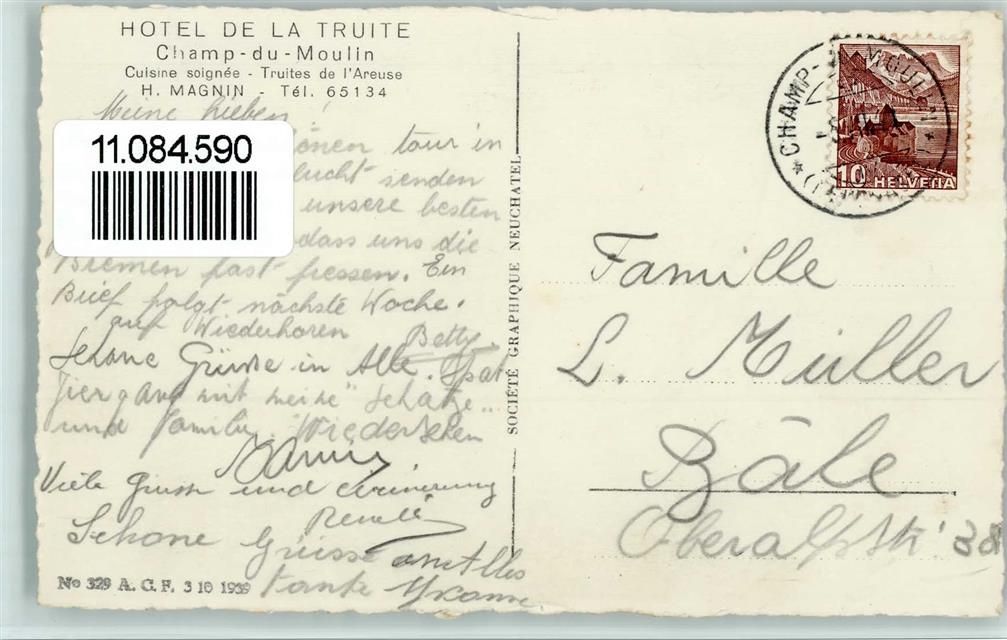 HOTEL DE LA TRUITE
Champ-du-Moulin
Cuisine soignée - Truites de l'Areuse
H. MAGNIN - Tél. 65134
Meine Lieben,
11.084.590
önen tour in
lucht senden
unsere besten
dass uns die
Bremen fast fressen. Ein
Brief folgt nächste Woche.
auf Wiederhoren
Betty.
Schöne Grüsse in Alle. Spat
Ziergang mit meine "Schatze"
und Familie. Wiedersehen
Viele Grüsse und erinnerung
Schone Grüsse an Alles
tante Yvonne.
No 329 A. C. F. 3 10 1939
SOCIÉTÉ GRAPHIQUE NEUCHATEL
CHAMP-DU-MOULIN
10 HELVETIA
Famille
L. Müller
Bâle
Oberalpstr. 38